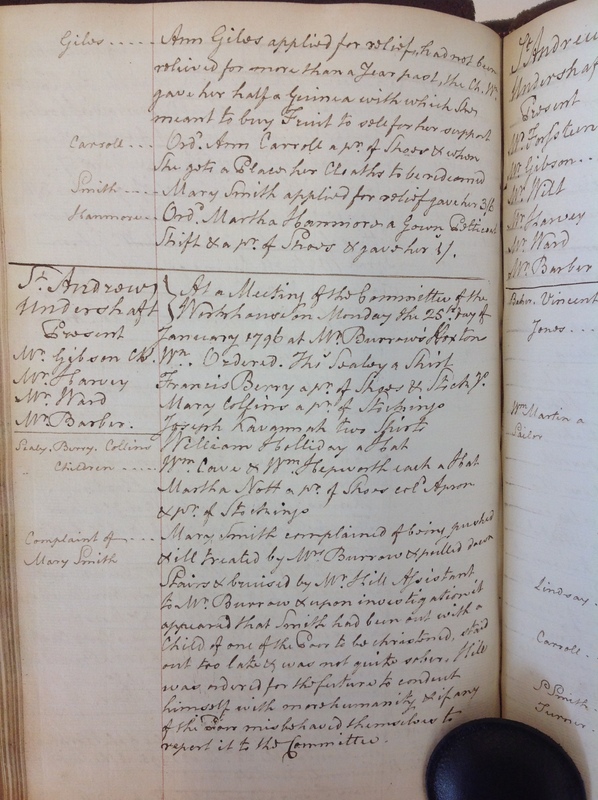 Giles ..... Ann Giles applied for relief, had not been
relieved for more than a Year past, the Ch. Wn
gave her half a Guinea with which She
meant to buy Fruit to sell for her support
Carroll ... Ordd. Ann Carroll a pr. of Shoes & when
She gets a Place her Cloaths to be redeemed
Smith .... Mary Smith applied for relief gave her 3/6
Hanmore .. Ordd. Martha Hanmore a Gown Petticoat
Shift & a pr. of Shoes & gave her 1/.
St. Andrews
Undershaft
Present
Mr. Gibson Ch.
Mr. Harvey
Mr. Ward
Mr. Barber.
At a Meeting of the Committee of the
Workhouse on Monday the 25th. Day of
January 1796 at Mr. Burrow's Hoxton
Wn. .. Ordered. Thos. Sealey a Shirt
Francis Berry a pr. of Shoes &
Mary Collins a pr. of Stockings
Joseph Kavanah two Shirts
William Holliday a Hat
Wm. Cave & Wm. Hepworth each a Hat
Martha Nott a pr. of Shoes cold. Apron
& pr. of Stockings
Sealy. Berry. Collins
Children .....
Complaint of ....
Mary Smith
Mary Smith complained of being pushed
& ill treated by Mr. Burrow & pulled down
Stairs & bruised by Mr. Hill Assistant
to Mr. Burrow & upon investigation it
appeared that Smith had been out with a
Child of one of the Poor to be christened. staid
out too late & was not quite sober. Hill
was ordered for the future to conduct
himself with more humanity, & if any
of the Poor misbehaved themselves to
report it to the Committee.
St. Andrew
Undershaf
Present
Mr. Forsteen
Mr. Gibson ..
Mr. Wilt
Mr. Harvey
Mr. Ward
Mr. Barber
Baker. Vincent
Jones ...
Wm Martin a
Sailor
Lindsay .
Carroll ..
Smith ..
Turner .